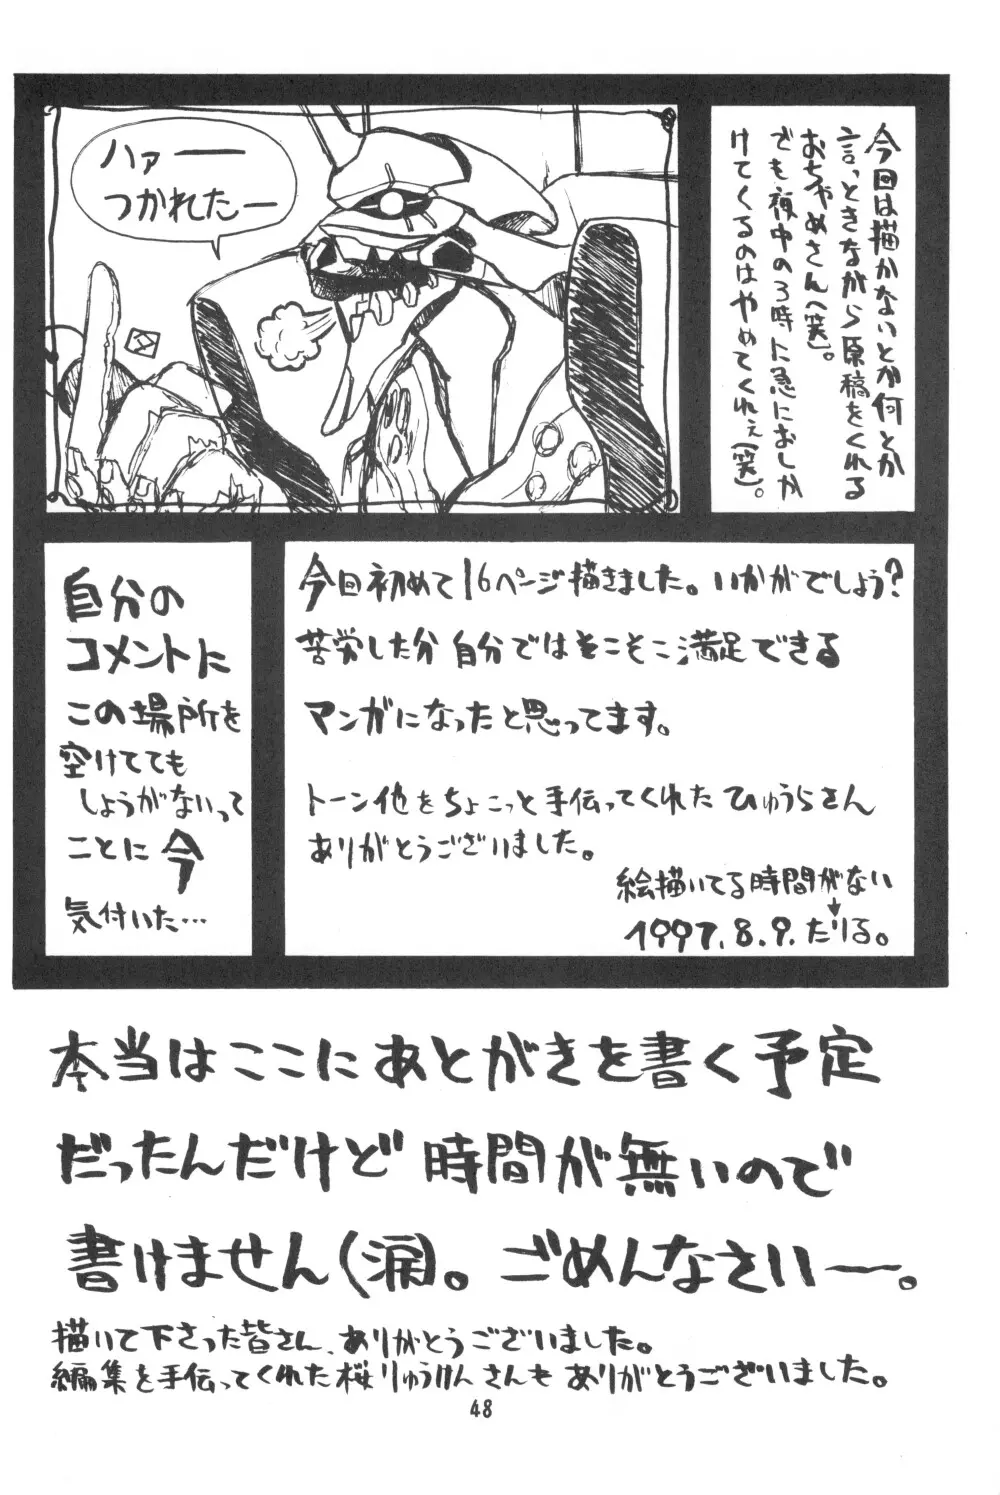 今回は描かないとか何とか
言っときながら原稿をくれる
おちゃめさん(笑)。
でも夜中の3時に急におしか
けてくるのはやめてくれぇ(笑)。
ハァー
つかれたー
今回初めて16ページ描きました。いかがでしょう?
苦労した分自分ではそこそこ満足できる
マンガになったと思ってます。
トーン他をちょこっと手伝ってくれたひゅうらさん
ありがとうございました。
絵描いてる時間がない
1997.8.9.たりる。
自分の
コメントに
この場所を
空けてても
しょうがないって
ことに今
気付いた…
本当はここにあとがきを書く予定
だったんだけど時間が無いので
書けません(涙)。ごめんなさいー。
描いて下さった皆さん、ありがとうございました。
編集を手伝ってくれた桜りゅうけんさんもありがとうございました。
48